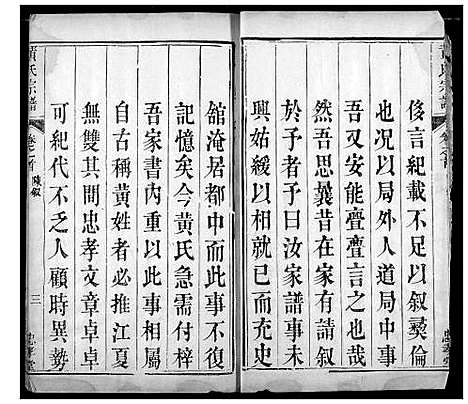 侈言紀載不足以叙彜倫
也况以局外人道局中事
吾又安能亹亹言之
然吾思曩昔在家有請叙
於予者予曰汝家譜事未
興姑緩以就已而充史
館淹居都中而此事不復
記憶矣今黄氏急需付梓
吾家書內重以此事相屬
自古稱黄姓者必推江夏
無雙其間忠孝文章卓卓
可紀代不乏人顧時異勢
黄氏宗譜
卷之首
陳叙
三